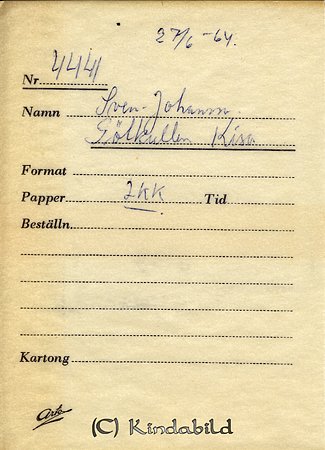 27/6 -64.
Nr 4441
Namn Sven-Johanson
Gölkullen Kisa
Format
Papper 2KK Tid
Beställn.
Kartong
Ark
(C) Kindabild